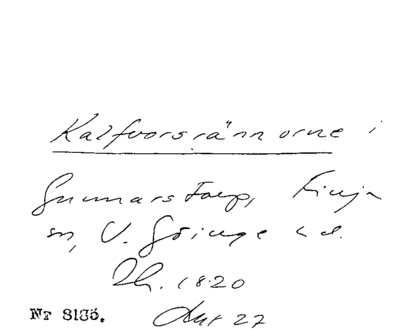 Kalfvorsrännorne i
Gunnarstorp, Finja
sn, V. Göinge hd.
Dh. 1820
Nr 8185. Aut 27